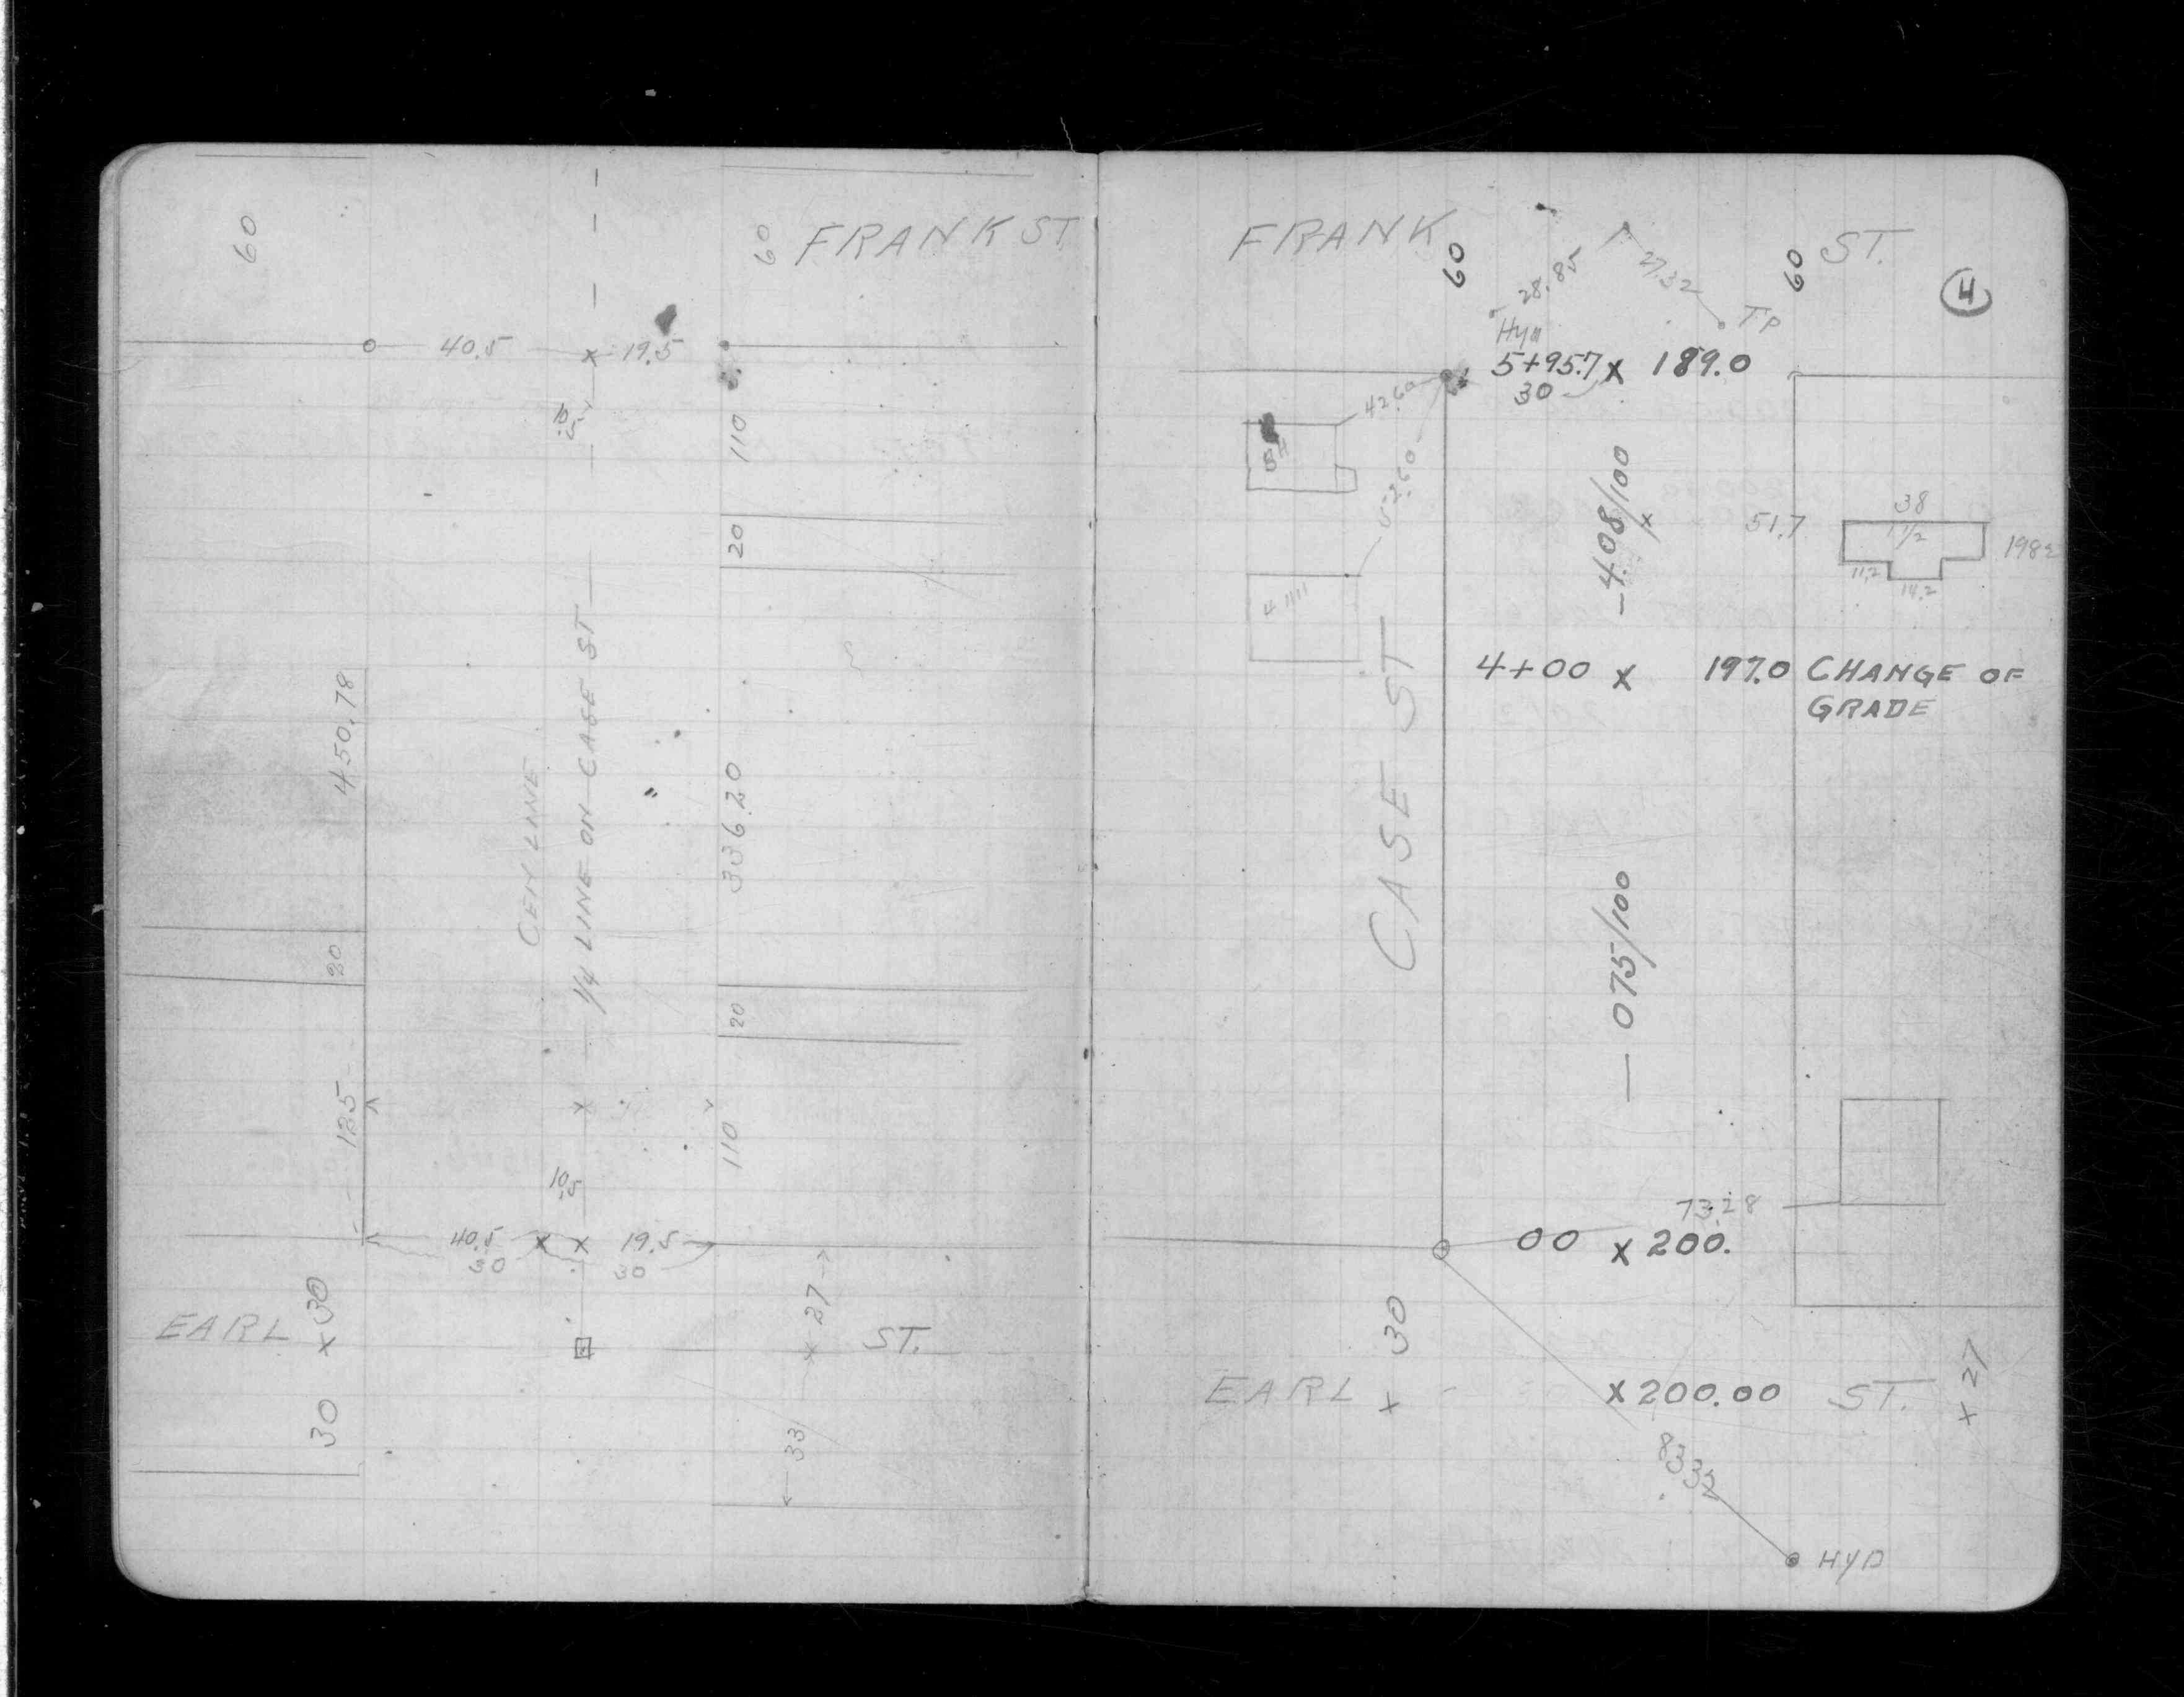 60
60 FRANK ST
40.5 x 19.5
10.5
110
20
450.78
CEM LINE
1/4 LINE ON CASE ST
336.20
20
20
125
110
10.5
40.5 x x 19.5
30 30
EARL x 30
27
ST.
30
33
FRANK 60
60 ST.
4
28.85
27.32
TP
Hyd
5+95.7 x 189.0
30
42.60
52.60
-4.08/100
x
51.7
38
1 1/2
11.2
14.2
CASE ST
4+00 x 197.0 CHANGE OF
GRADE
- 0.75/100
73.28
00 x 200.
30
EARL x
x 200.00 ST.
x 27
83.35
HYD